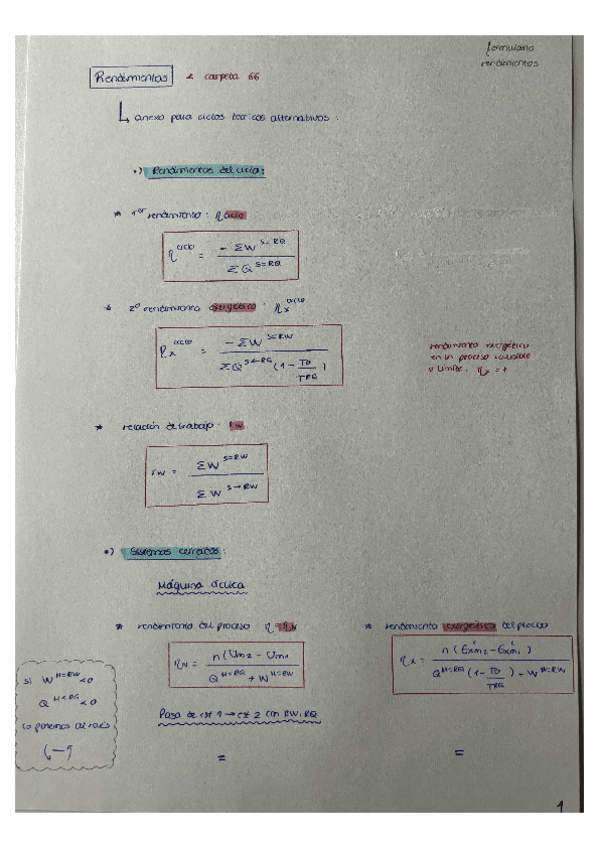 formulario
rendimientos
Rendimientos
carpeta 66
anexo para ciclos teóricos alternativos :
•) Rendimientos del ciclo:
* 1er rendimiento : η ciclo
η ciclo = -ΣW S⇌RW / ΣQ S⇌RQ
* 2º rendimiento exergético : ηx ciclo
ηx ciclo = -ΣW S⇌RW / ΣQ S←RQ (1 - T0/TRQ)
rendimiento exergético
en un proceso
o límite, ηx = 1
* relación de trabajo : rw
rw = ΣW S⇌RW / ΣW S→RW
•) Sistemas cerrados:
Máquina cíclica
* rendimiento del proceso
ηN = n(Um2 - Um1) / Q M⇌RQ + W M⇌RW
Pasa de est 1 → est 2 con RW, RQ
=
* rendimiento exergético del proceso
ηx = n(Exm2 - Exm1) / Q M⇌RQ (1 - T0/TRQ) - W M⇌RW
=
si W M⇌RW <0
Q M⇌RQ <0
lo ponemos al revés
(-1
1